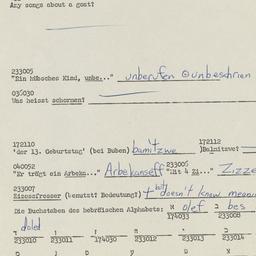 Any songs about a goat?
233005
"Ein hübsches Kind, unbe..." unberufen unbeschrien
030030
Was heisst schornen?
172110 172112
'der 13. Geburtstag' (bei Buben) bamitzwe )Balmitzve!
040052 233006
"Er trägt ein Arbeka..." Arbekanseff "Mit 4 Zi..." Zizze
233007
Zizessfresser (benutzt? Bedeutung?) + but doesn't know meani
Die Buchstaben des hebräischen Alphabets: א olef ב bes
174033 233008
daled
233010 233011 174030 233012 233013 233014